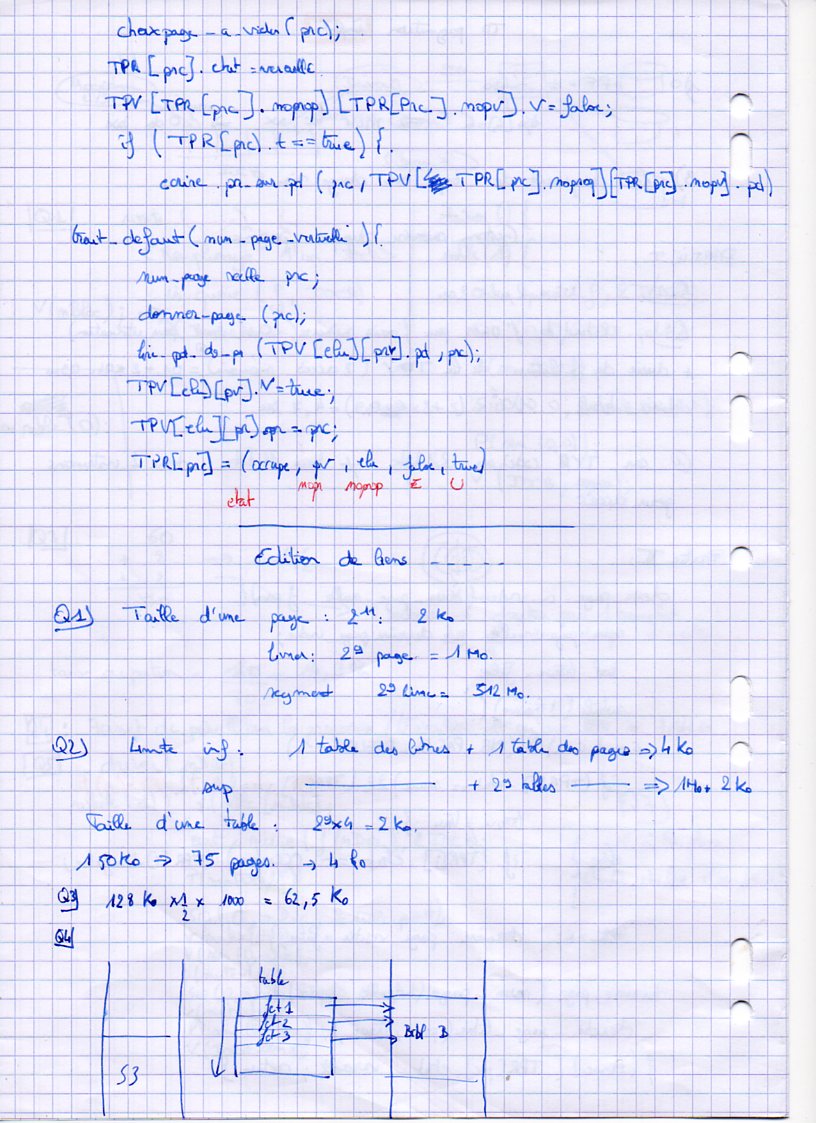 choixpage_a_vider(prc);
TPR[prc].etat = verouille
TPV[TPR[prc].noprop][TPR[Prc].nopv].V = false;
if (TPR[prc).t == true) {.
ecrire_pr_sur_pd (prc, TPV[TPR[prc].noprop][TPR[prc].nopv].pd)
trait_defaut(num_page_virtuelle){
num_page reelle prc;
donner_page (prc);
lire_pd_ds_pr (TPV[elu][prv].pd, prc);
TPV[elu)[pv].V = true;
TPV[elu][pr).npr = prc;
TPR[prc] = (occupe, pv, elu, false, true)
etat nopr noprop E U
Edition de liens -----
Q1) Taille d'une page : 2^11 : 2 Ko
livre : 2^9 page = 1 Mo.
segment 2^9 livre = 512 Mo.
Q2) Limite inf : 1 table des livres + 1 table des pages => 4 Ko
sup ———— + 2^9 tables ——— => 1Mo + 2 Ko
Taille d'une table : 2^9x4 = 2 Ko.
150Ko => 75 pages. -> 4 ko
Q3) 128 Ko x 1/2 x 1000 = 62,5 Ko
Q4)
table
fct1
fct2
fct3
Bibl B
S3